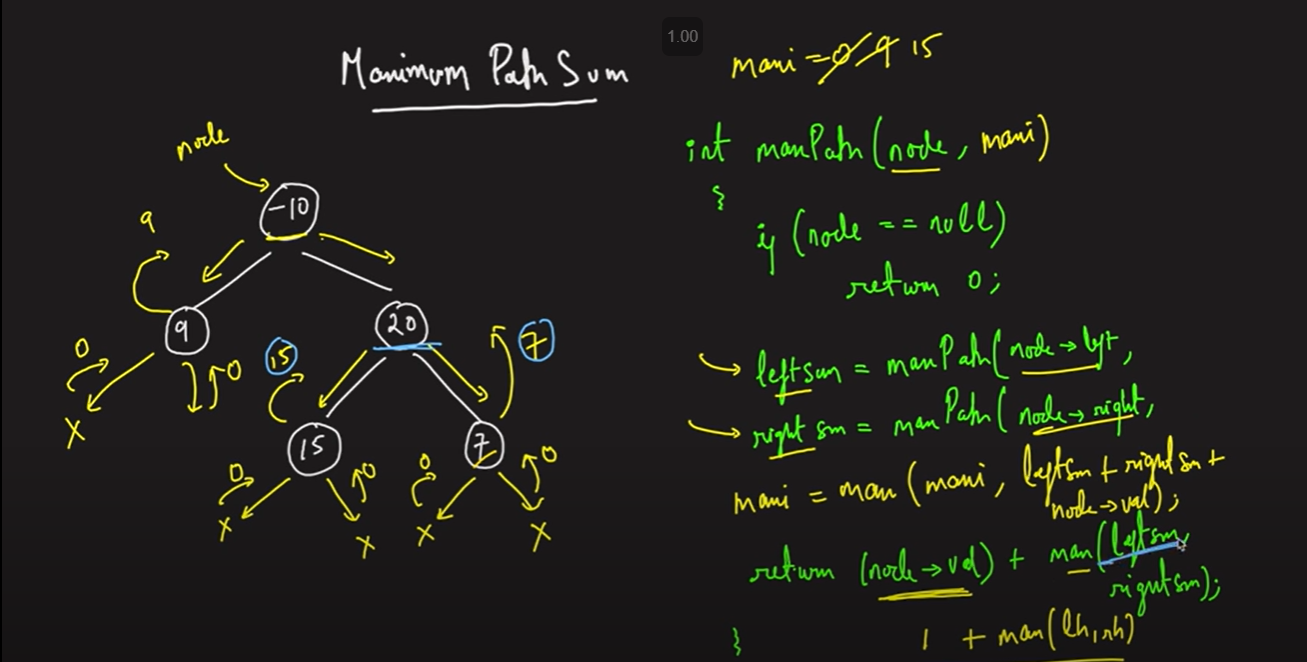 1.00
Maximum Path Sum
maxi = 0 9 15
node
-10
9
9
20
0
0
15
7
15
7
X
0
0
0
0
X
X
X
X
int maxPath(node, maxi)
{
if (node == null)
return 0;
leftsum = maxPath(node→left,
rightsm = maxPath(node→right,
maxi = max(maxi, leftsm + rightsm +
node→val);
return (node→val) + max(leftsm,
rightsm);
}
1 + max(lh,rh)